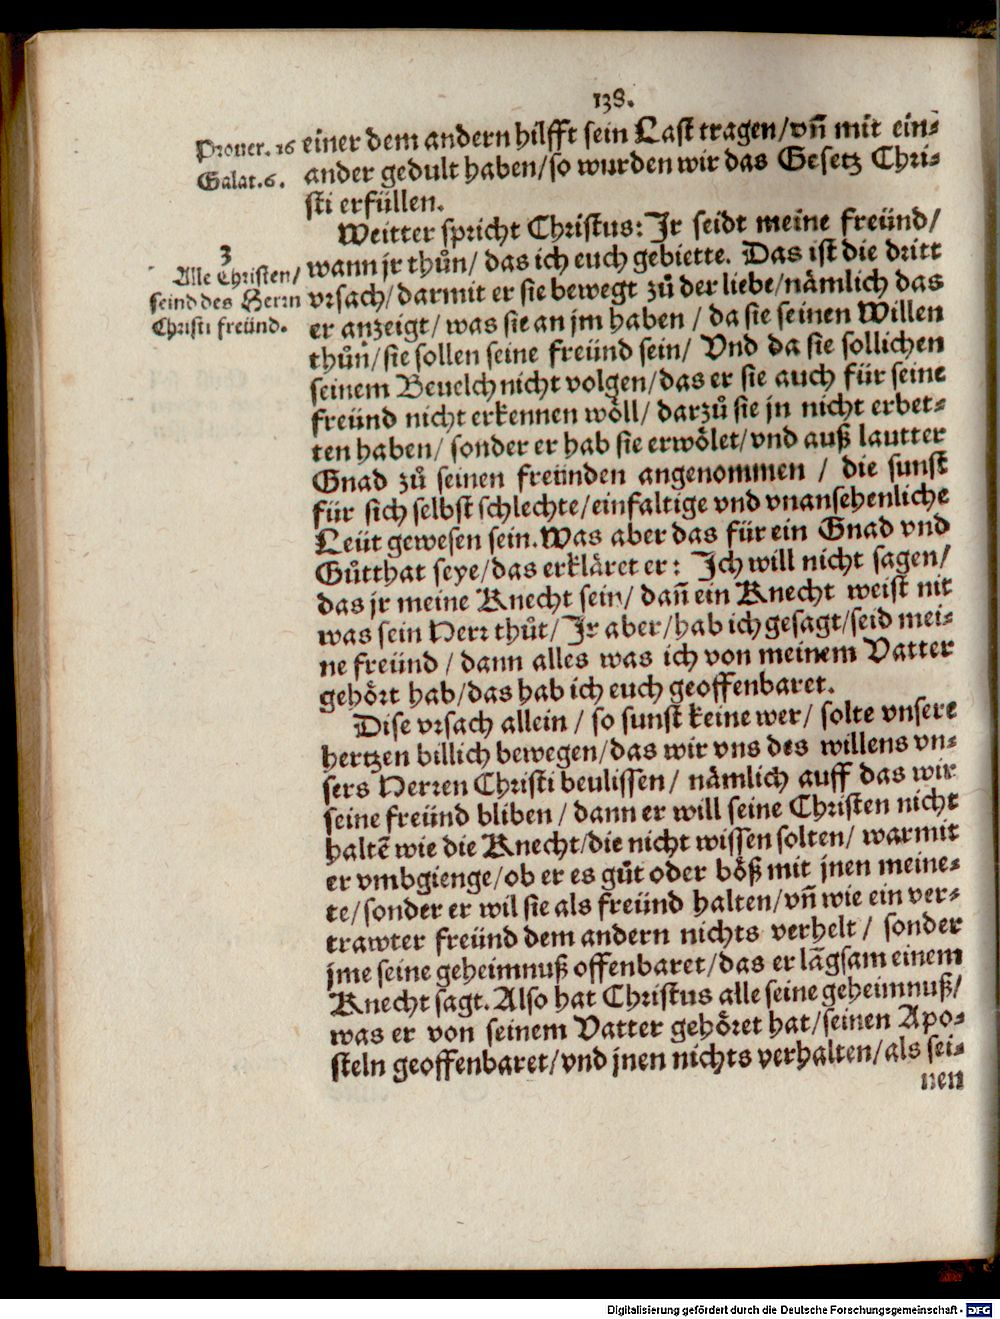 138.
Prouer. 16
Galat. 6.
einer dem andern hilfft sein Last tragen/vñ mit ein⸗
ander gedult haben/so wurden wir das Gesetz Chri⸗
sti erfüllen.
Weitter spricht Christus: Jr seidt meine freünd/
3
Alle Christen/
seind des Herrn
Christi freünd.
wann jr thůn/ das ich euch gebiette. Das ist die dritt
vrsach/darmit er sie bewegt zů der liebe/nämlich das
er anzeigt/was sie an jm haben / da sie seinen Willen
thůn/sie sollen seine freünd sein/ Vnd da sie sollichen
seinem Beuelch nicht volgen/das er sie auch für seine
freünd nicht erkennen wöll/ darzů sie jn nicht erbet⸗
ten haben/ sonder er hab sie erwölet/vnd auß lautter
Gnad zů seinen freünden angenommen / die sunst
für sich selbst schlechte/einfaltige vnd vnansehenliche
Leüt gewesen sein. Was aber das für ein Gnad vnd
Gůtthat seye/das erkläret er: Jch will nicht sagen/
das jr meine Knecht sein/ dañ ein Knecht weist nit
was sein Herr thůt/ Jr aber/hab ich gesagt/seid mei⸗
ne freünd / dann alles was ich von meinem Vatter
gehört hab/das hab ich euch geoffenbaret.
Dise vrsach allein / so sunst keine wer/ solte vnsere
hertzen billich bewegen/das wir vns des willens vn⸗
sers Herren Christi beulissen/ nämlich auff das wir
seine freünd bliben / dann er will seine Christen nicht
haltẽ wie die Knecht/die nicht wissen solten/ warmit
er vmbgienge/ob er es gůt oder böß mit jnen meine⸗
te/sonder er wil sie als freünd halten/vñ wie ein ver⸗
trawter freünd dem andern nichts verhelt / sonder
jme seine geheimnuß offenbaret/das er lãgsam einem
Knecht sagt. Also hat Christus alle seine geheimnuß/
was er von seinem Vatter gehöret hat/seinen Apo⸗
steln geoffenbaret/vnd jnen nichts verhalten/als sei⸗
nen
Digitalisierung gefördert durch die Deutsche Forschungsgemeinschaft - DFG